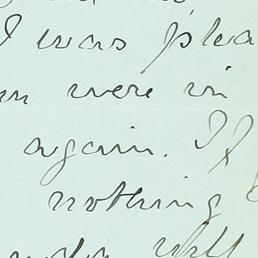 I was plea
were in
again. If
nothing
will